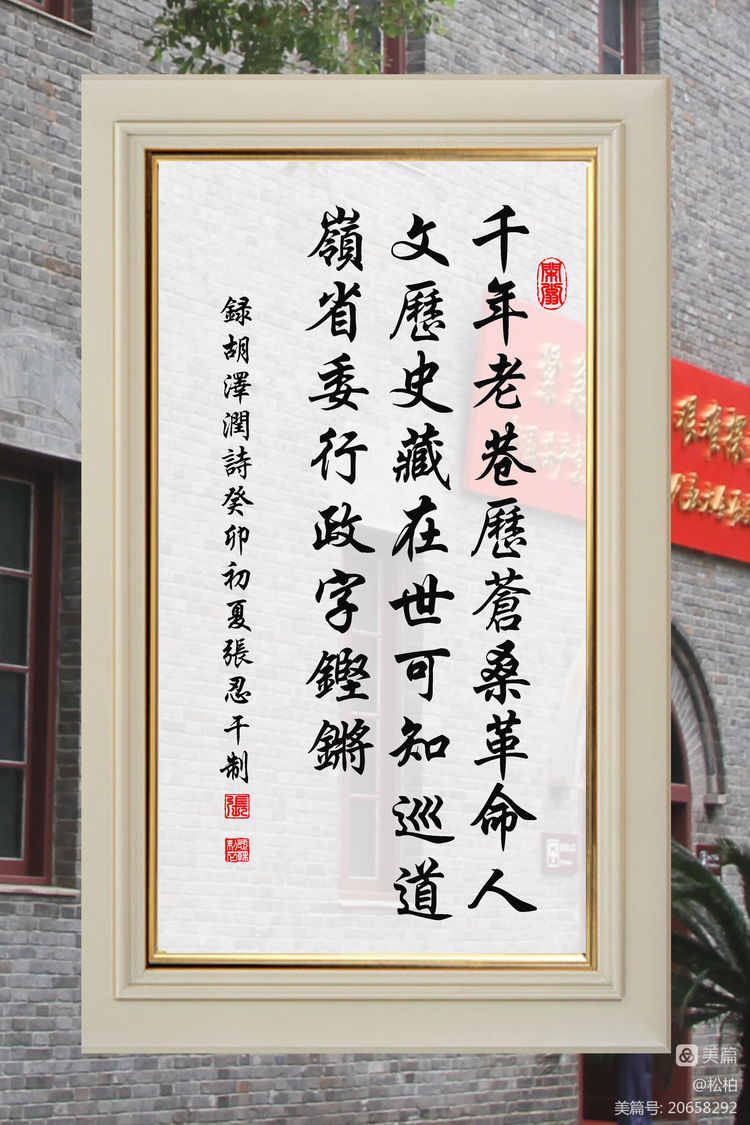 千年老巷歷蒼桑革命人
文歷史藏在世可知巡道
嶺省委行政字鏗鏘
録胡澤潤詩癸卯初夏張忍干制
張
美篇
@松柏
美篇号: 20658292